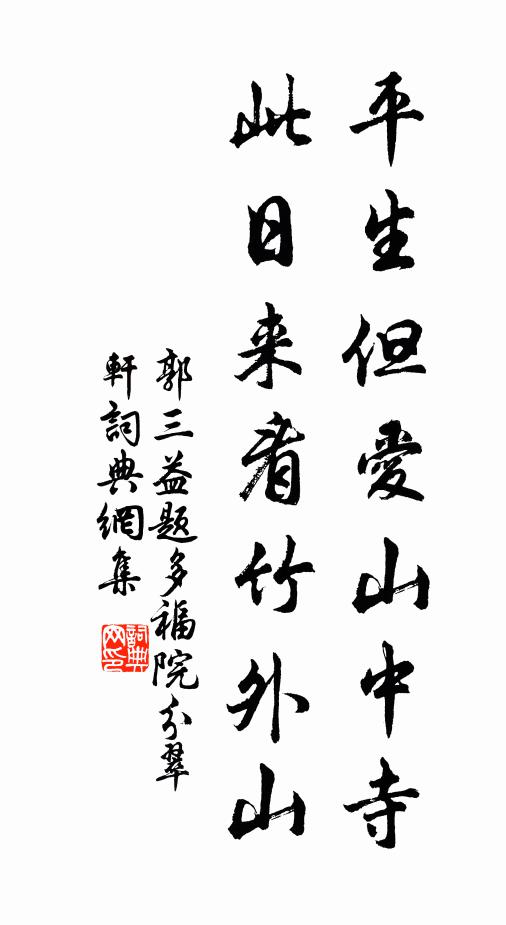 平生但愛山中寺
此日来看竹外山
郭三益題多福院分翠
軒詞典網集
詞典
网印